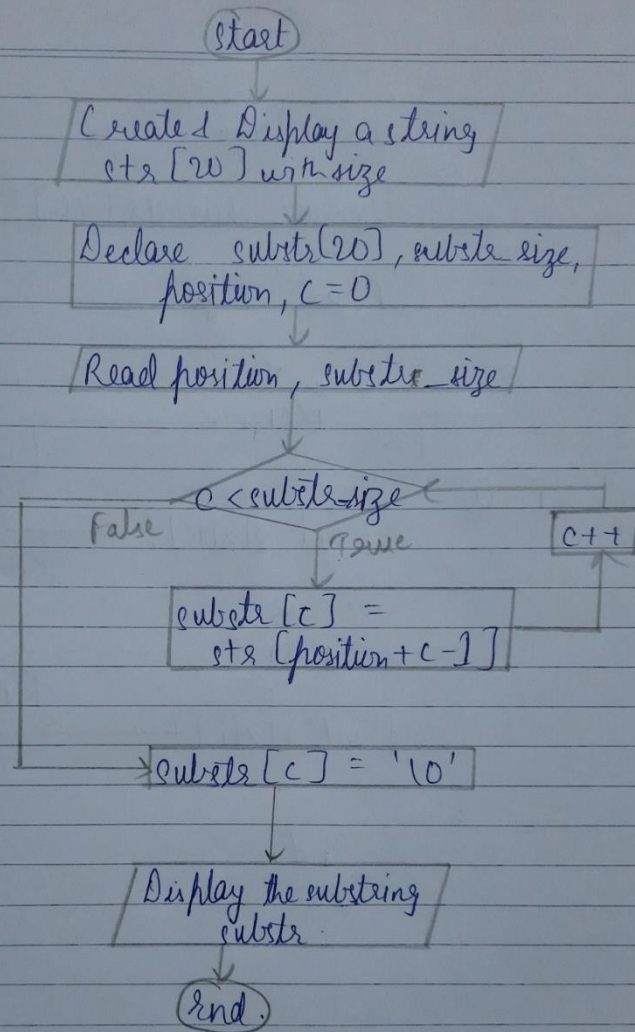 start
Create & Display a string
str [20] with size
Declare substr[20], substr_size,
position, c=0
Read position, substr_size
c < substr_size
False
True
c++
substr [c] =
str [position+c-1]
substr [c] = '\0'
Display the substring
substr.
End.